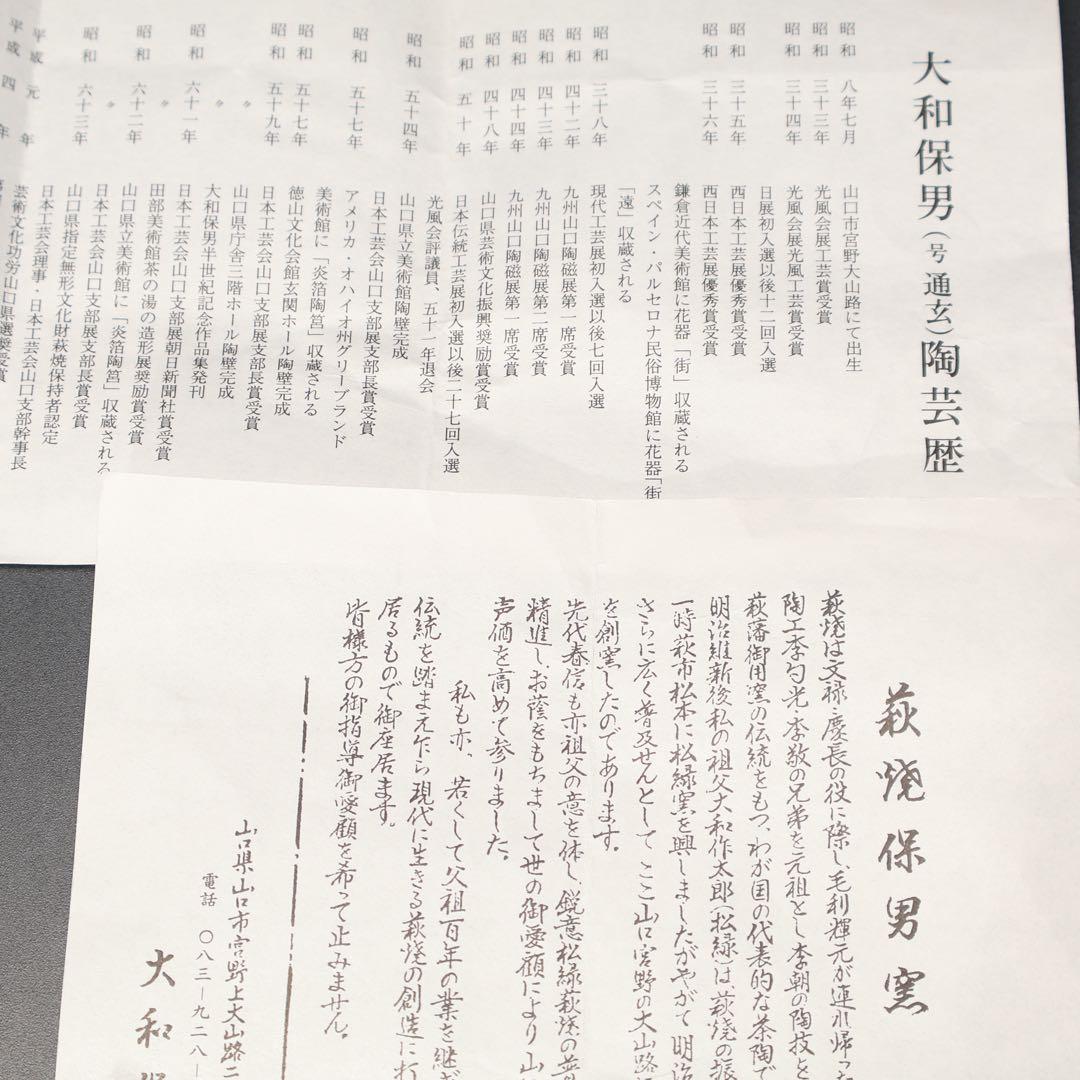 大和保男（号通玄）陶芸歴
昭和 八年七月 山口市宮野大山路にて出生
昭和 三十三年 光風会展工芸賞受賞
昭和 三十四年 光風会展光風工芸賞受賞
日展初入選以後十二回入選
昭和 三十五年 西日本工芸展優秀賞受賞
昭和 三十六年 西日本工芸展優秀賞受賞
鎌倉近代美術館に花器「街」収蔵される
スペイン・バルセロナ民俗博物館に花器「街
「遠」収蔵される
昭和 三十八年 現代工芸展初入選以後七回入選
昭和 四十二年 九州山口陶磁展第一席受賞
昭和 四十三年 九州山口陶磁展第二席受賞
昭和 四十四年 九州山口陶磁展第一席受賞
昭和 四十八年 山口県芸術文化振興奨励賞受賞
昭和 五十年 日本伝統工芸展初入選以後二十七回入選
光風会評議員、五十一年退会
昭和 五十四年 山口県立美術館陶壁完成
日本工芸会山口支部展支部長賞受賞
昭和 五十七年 アメリカ・オハイオ州グリーブランド
美術館に「炎箔陶筥」収蔵される
昭和 五十七年 徳山文化会館玄関ホール陶壁完成
昭和 五十九年 日本工芸会山口支部展支部長賞受賞
〃 山口県庁舎三階ホール陶壁完成
〃 大和保男半世紀記念作品集発刊
昭和 六十一年 日本工芸会山口支部展朝日新聞社賞受賞
〃 田部美術館茶の湯の造形展奨励賞受賞
昭和 六十二年 山口県立美術館に「炎箔陶筥」収蔵される
〃 日本工芸会山口支部展支部長賞受賞
昭和 六十三年 山口県指定無形文化財萩焼保持者認定
平成 元年 日本工芸会理事・日本工芸会山口支部幹事長
平成 四年 芸術文化功労山口県選奨受賞
萩焼保男窯
萩焼は文禄・慶長の役に際し、毛利輝元が連れ帰った
陶工李勺光・李敬の兄弟を元祖とし李朝の陶技と
萩藩御用窯の伝統をもつ、わが国の代表的な茶陶で
明治維新後私の祖父大和作太郎（松緑）は、萩焼の振
一時萩市松本に松緑窯を興しましたがやがて明治
さらに広く普及せんとして ここ山口宮野の大山路に
を創窯したのであります。
先代春信も亦祖父の意を体し、鋭意松緑萩焼の普
精進し、お蔭をもちまして世の御愛顧により山
声価を高めて参りました。
私も亦、若くして父祖百年の業を継
伝統を踏まえ乍ら現代に生きる萩焼の創造に打
居るもので御座居ます。
皆様方の御指導御愛顧を希って止みません。
山口県山口市宮野上大山路二
電話 〇八三ー九二八ー
大和保